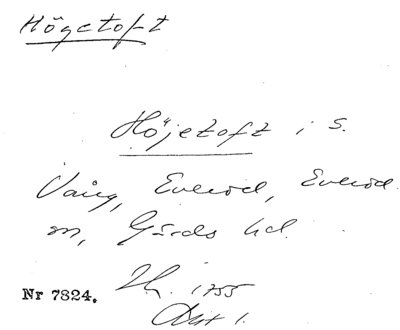 Högetoft
Höjetoft i S.
Vång, Everöd, Everöd
sn, Gärds hd.
Nr 7824. Lh. 1755
Akt 1.